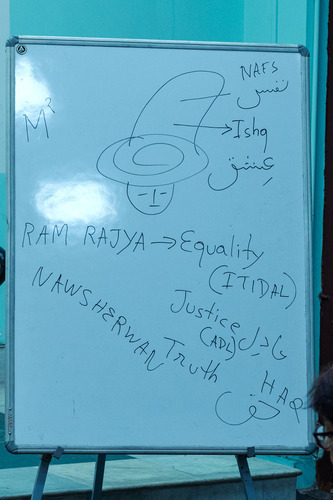 M²
NAFS
نفس
Ishq
عشق
RAM RAJYA → Equality
(ITIDAL)
NAWSHERWAN
Justice
(ADL) عادل
Truth
HAQ
حق